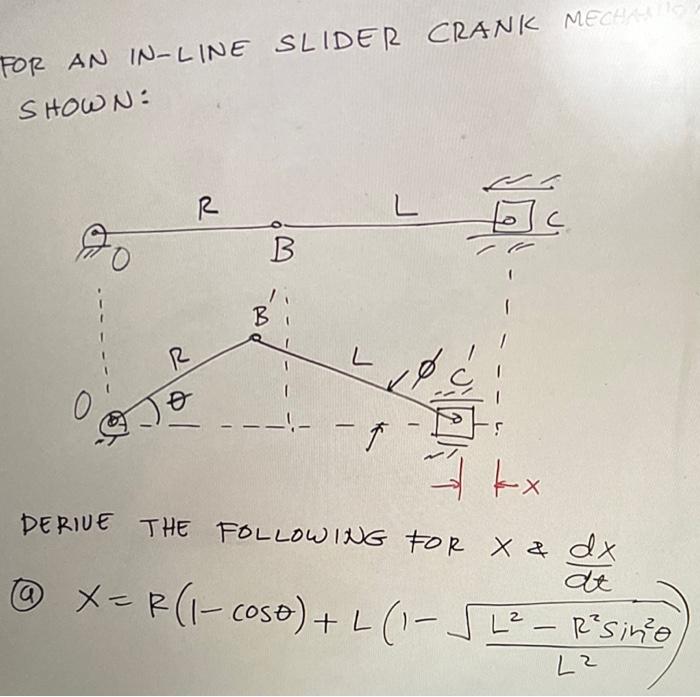 FOR AN IN-LINE SLIDER CRANK
SHOWN:
R L
O B C
B'
R L φ C'
O θ
x
DERIVE THE FOLLOWING FOR X & dx/dt
ⓐ X = R(1-cosθ) + L(1-√((L²-R²sin²θ)/L²))